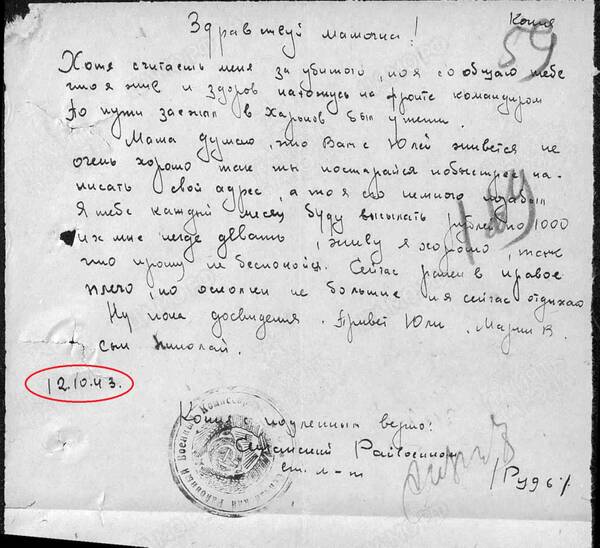 Копия
Здравствуй мамочка!
59
Хотя считаешь меня за убитого, но я сообщаю тебе
что я жив и здоров нахожусь на фронте командиром
По пути заезжал в Харьков был у тети.
Мама думаю, что Вам с Юлей живется не
очень хорошо так ты постарайся побыстрее на-
писать свой адрес, а то я его немного позабыл
Я тебе каждый месяц буду высылать рублей по 1000
их мне негде девать, живу я хорошо, так
что прошу не беспокойся. Сейчас ранен в правое
плечо, но осколки не большие и я сейчас отдыхаю
Ну пока досвидения. Привет Юли, Марии В.
сын Николай.
12.10.43.
Копия с подлинным верно:
Райвоенком
ст. л-т /Рудь/